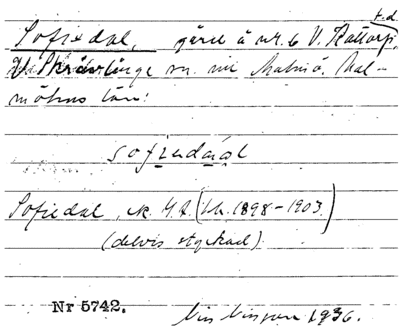 t.d.
Sofiedal, gård å nr. 6 V. Kattarp,
V. Skrävlinge sn. nu Malmö. Mal-
möhus län:
sofiedaal
Sofiedal, ek. G. A. (Uk. 1898-1903)
(delvis styckad).
Nr 5742. 1936.